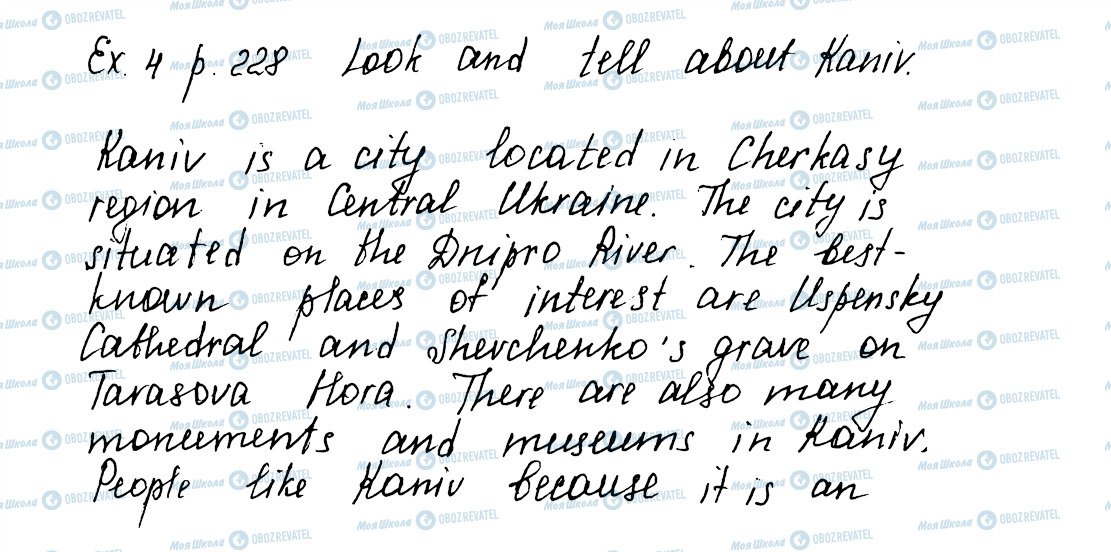 Ex. 4 p. 228 Look and tell about Kaniv.
Kaniv is a city located in Cherkasy
region in Central Ukraine. The city is
situated on the Dnipro River. The best-
known places of interest are Uspensky
Cathedral and Shevchenko's grave on
Tarasova Hora. There are also many
monuments and museums in Kaniv.
People like Kaniv because it is an